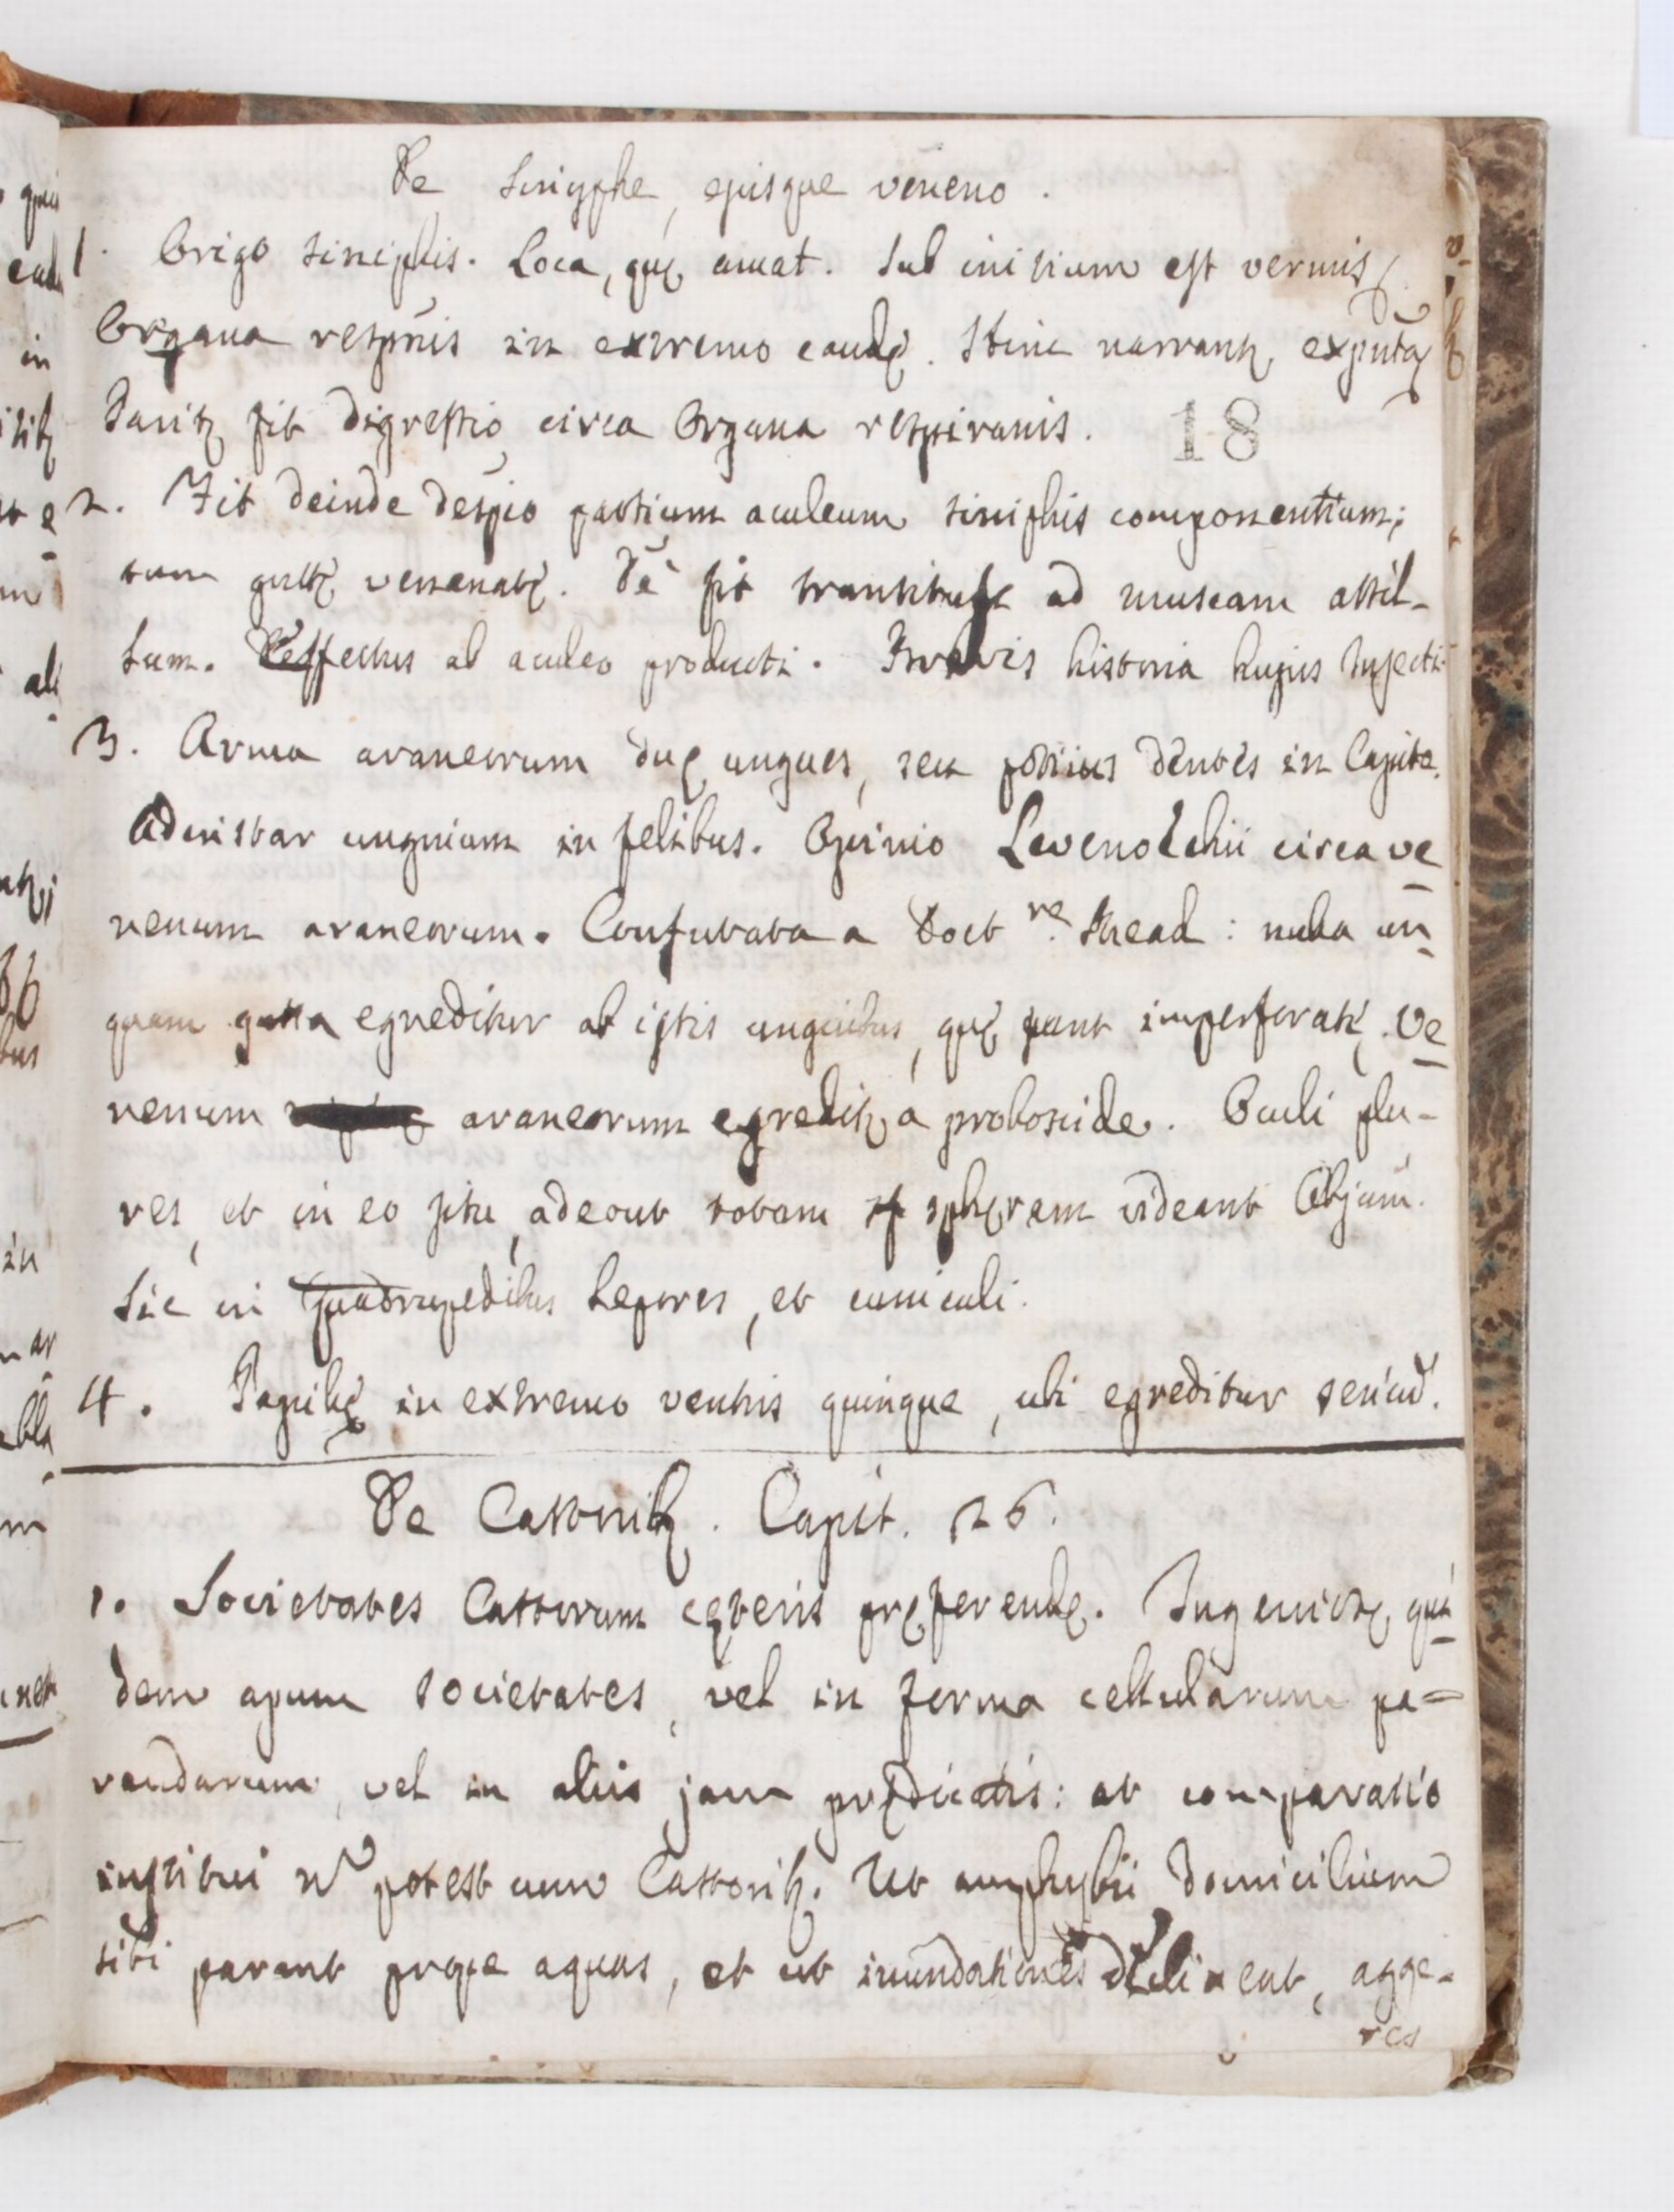 De Siniphe, ejusque veneno.
1. Origo siniphis. Loca, quę amat. Sub initium est vermis.
Organa respnis in extremo caudę. Hinc narrantꝫ
Paritꝫ fit digressio circa Organa respirationis. 18
2. Fit deinde despio partium aculeum siniphis componentium;
tum guttę venenatę. De fit ad muscam assil-
lum. effectus ab aculeo producti. Brevis historia hujus Insecti.
3. Arma araneorum duę ungues, seu potius dentes in Capite.
Ad instar unguium in felibus. Opinio Levenolchii circa ve
nenum araneorum. Confutata a Doctre. Mead: nulla un
quam gutta egreditur ab istis unguibus, quę sunt imperforatę. Ve
nenum araneorum egreditꝫ a proboscide. Oculi plu-
res, et in eo situ, adeout totam sphęram videant Objum.
Sic in Quadrupedibus Lepores, et cuniculi.
4. Papilę in extremo ventris quinque, ubi egreditur
De Castoribꝫ. Capit. 26.
1. Societates Castorum cęteris pręferendę. Ingeniosę qui
dem apum societates, vel in forma cellularum pa-
randarum, vel in aliis jam prędictis: at comparatio
institui n potest cum Castoribꝫ. Ut amphybii domicilium
sibi parant prope aquas, et ut inundationes, agge-
res